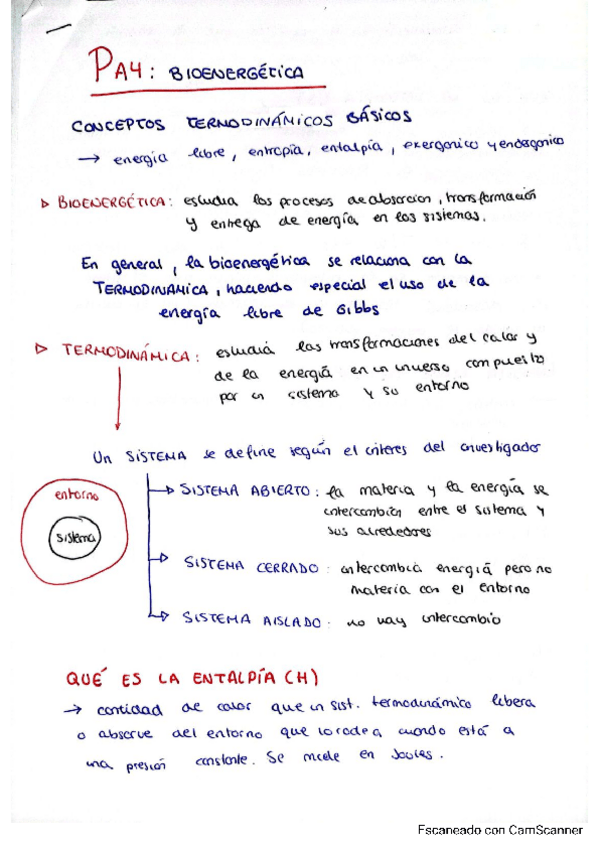 PA4: BIOENERGÉTICA
CONCEPTOS TERMODINÁMICOS BÁSICOS
→ energía libre, entropía, entalpía, exergonico y endergonico
▷ BIOENERGÉTICA: estudia los procesos de absorcion, transformación
y entrega de energía en los sistemas.
En general, la bioenergética se relaciona con la
TERMODINAMICA, haciendo especial el uso de la
energía libre de Gibbs
▷ TERMODINÁMICA: estudia las transformaciones del calor y
de la energía en un universo compuesto
por un sistema y su entorno
Un SISTEMA se define según el criteres del investigador
entorno
sistema
→ SISTEMA ABIERTO: la materia y la energía se
intercambian entre el sistema y
sus alrededores
→ SISTEMA CERRADO: intercambia energía pero no
materia con el entorno
→ SISTEMA AISLADO: no hay intercambio
QUÉ ES LA ENTALPÍA (H)
→ cantidad de calor que un sist. termodinámico libera
o absorve del entorno que lo rodea cuando está a
una presión constante. Se mide en Joules.
Escaneado con CamScanner